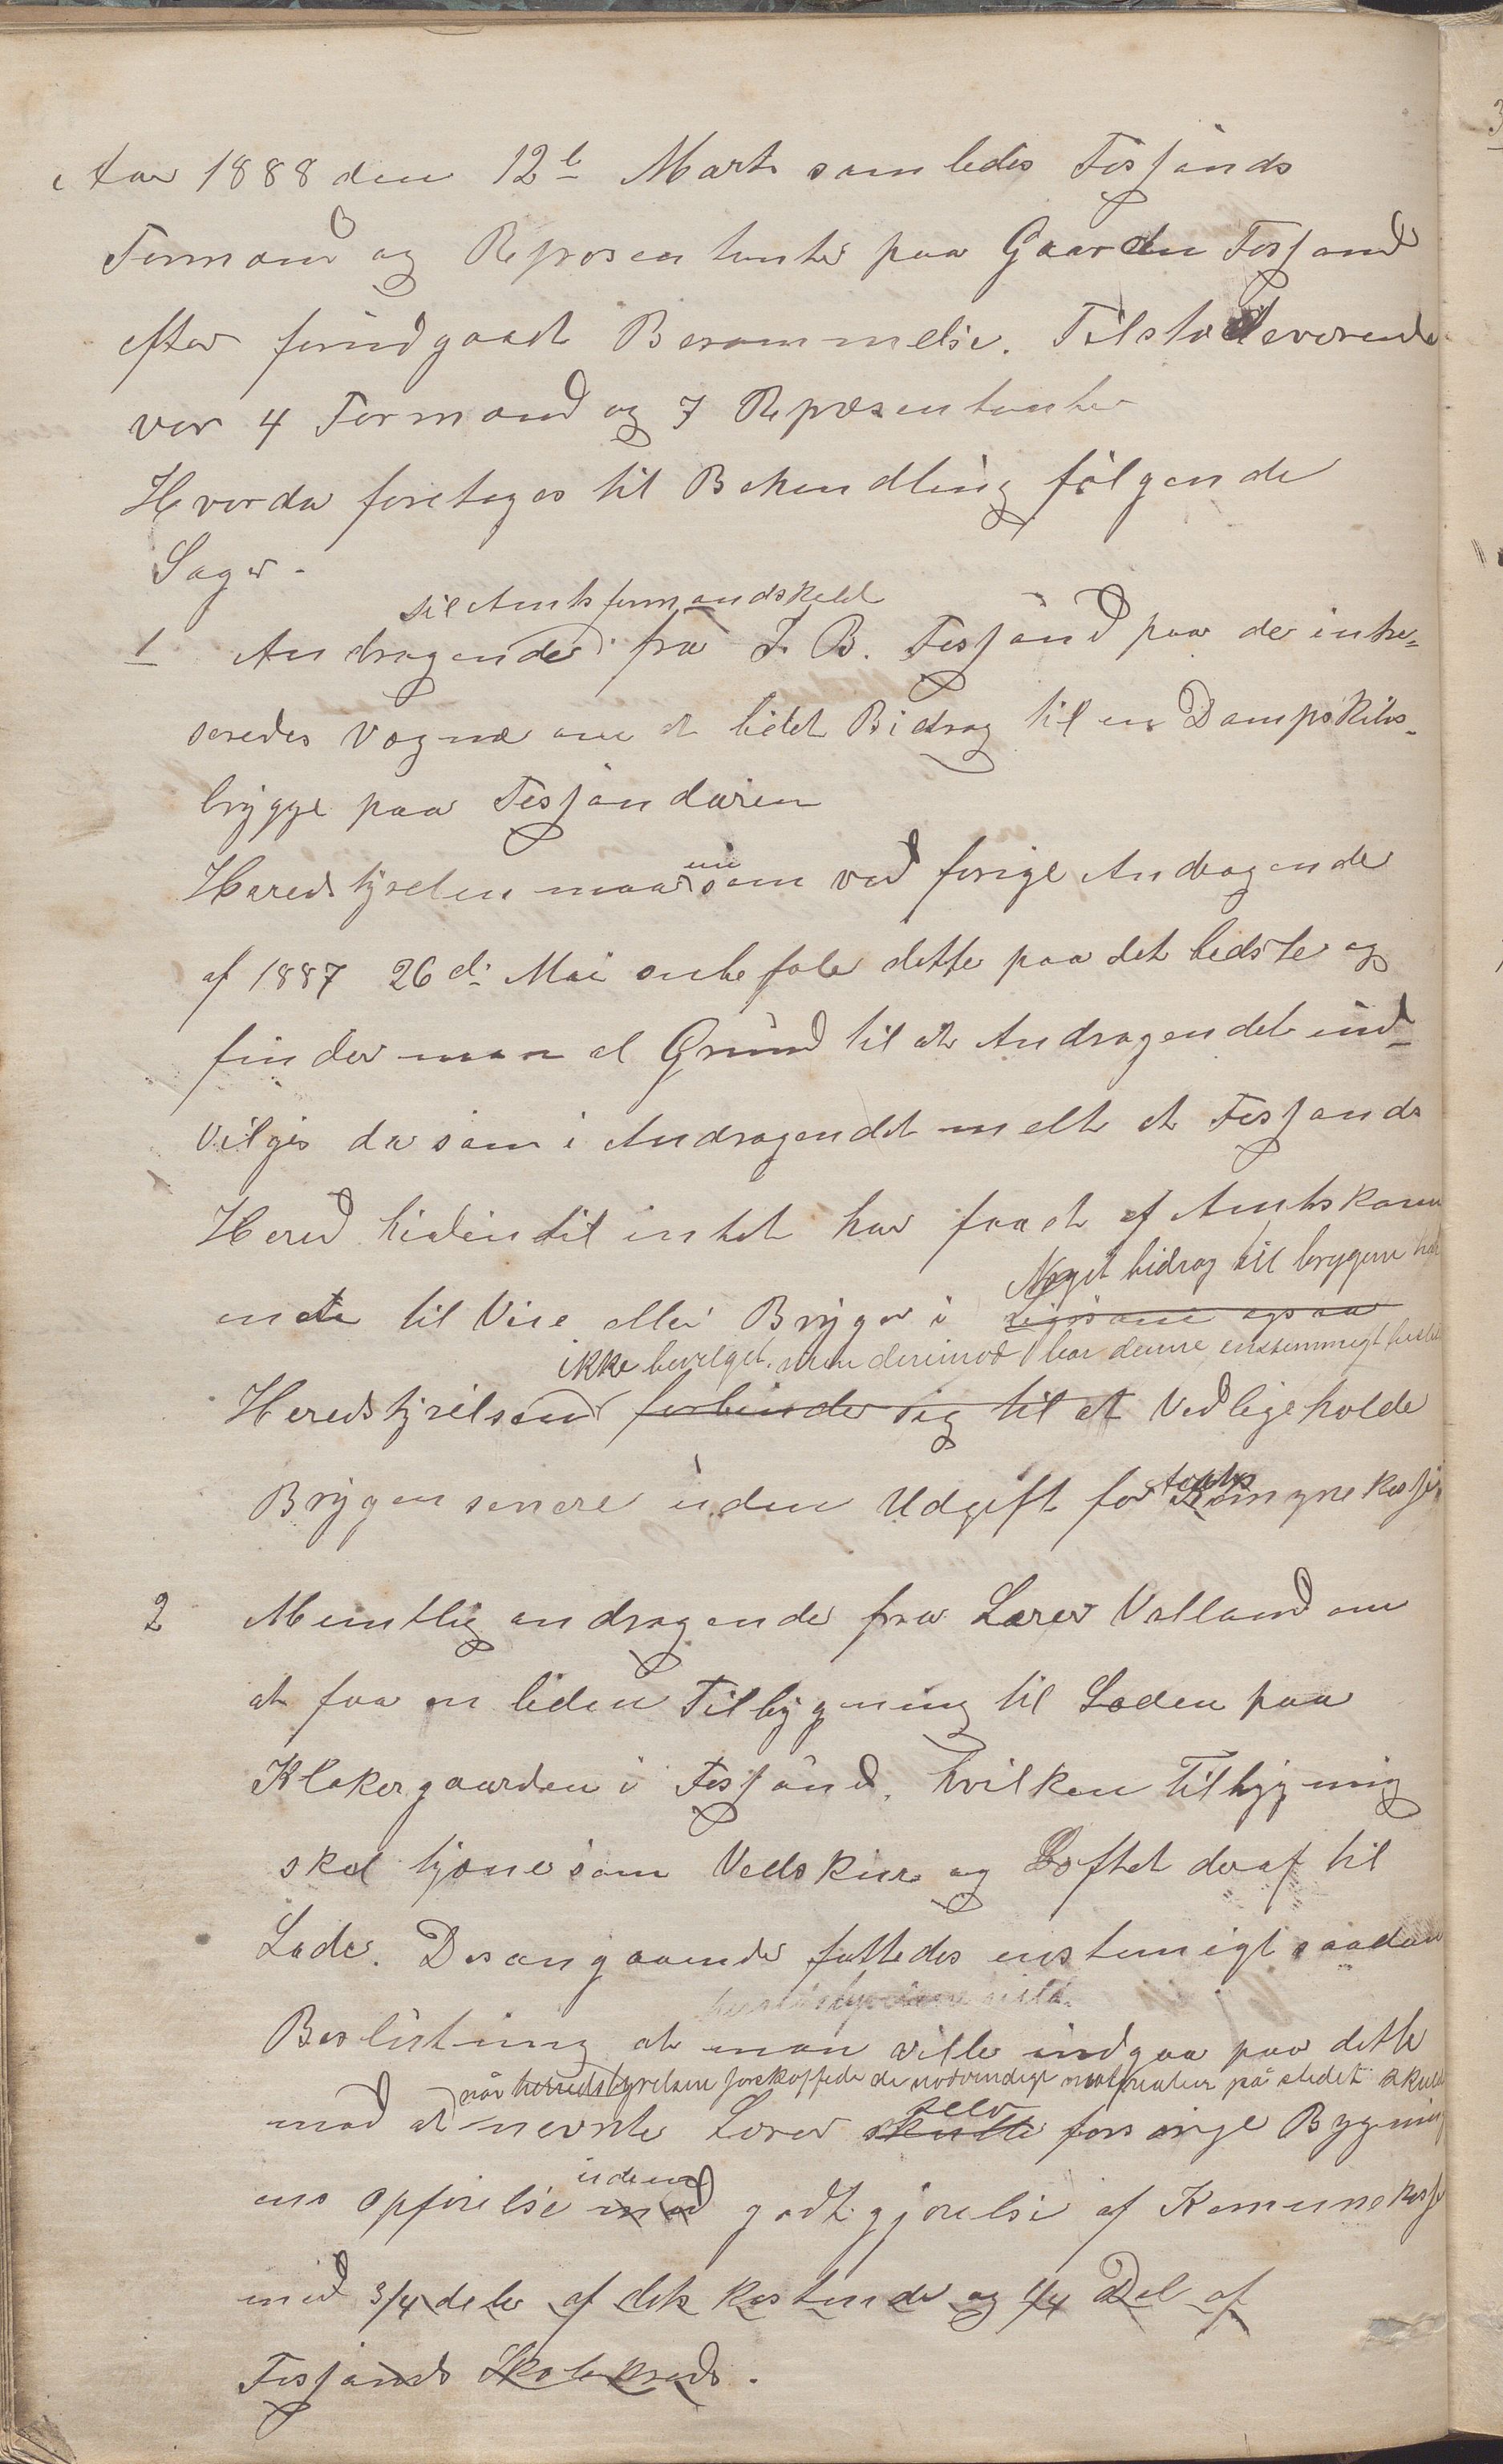 Aar 1888 den 12te Marts samledes Fosfands
Formænd og Repræsentanter paa Gaarden Fosfand
efter forudgaadt Berammelse. Tilstædeværende
var 4 Formænd og 7 Repræsentanter
Hvorda foretoges til Behandling følgende
Sager.
til Amtsformandskabet
1 Andragende fra J. B. Fosfand paa de intre=
seredes Vægne om et lidet Bidrag til en Dampskibs-
brygge paa Fosfandøren
nu
Heredstyrelsen maa som ved forige Andragende
af 1887 26de Mai anbefale dette paa det bedste og
finder man al Grund til at Andragendet ind-
vilges da som i Andragendet meldt at Fosfands
Hered hidindtil intet har faaet af Amtskom
Noget bidrag til bryggen har
mete til Veie eller Brygger i
ikke bevilget, men derimod har denne enstemmigt beslut
Heredstyrelsen forbinder sig til at Vedligeholde
Bryggen senere uden Udgift for Amts Komunekassen
2 Mundtlig andragende fra Lærer Valland om
at faa en liden Tilbygning til Laden paa
Klokergaarden i Fosfand, hvilken Tilbygning
skal tjene som Vedskur og Loftet deraf til
Lade. Desangaaende fattedes enstemigt saadan
Beslutning at man ville indgaa paa dette
når herredstyrelsen forskaffede de nødvendige materialier på stedet skulde
mod at nevnte Lærer selv skulle forsørge Bygning
uden
ens opførelse mod godtgjørelse af Komunekassen
med 3/4 dele af det kostende og 1/4 Del af
Fosfands Skolekreds.